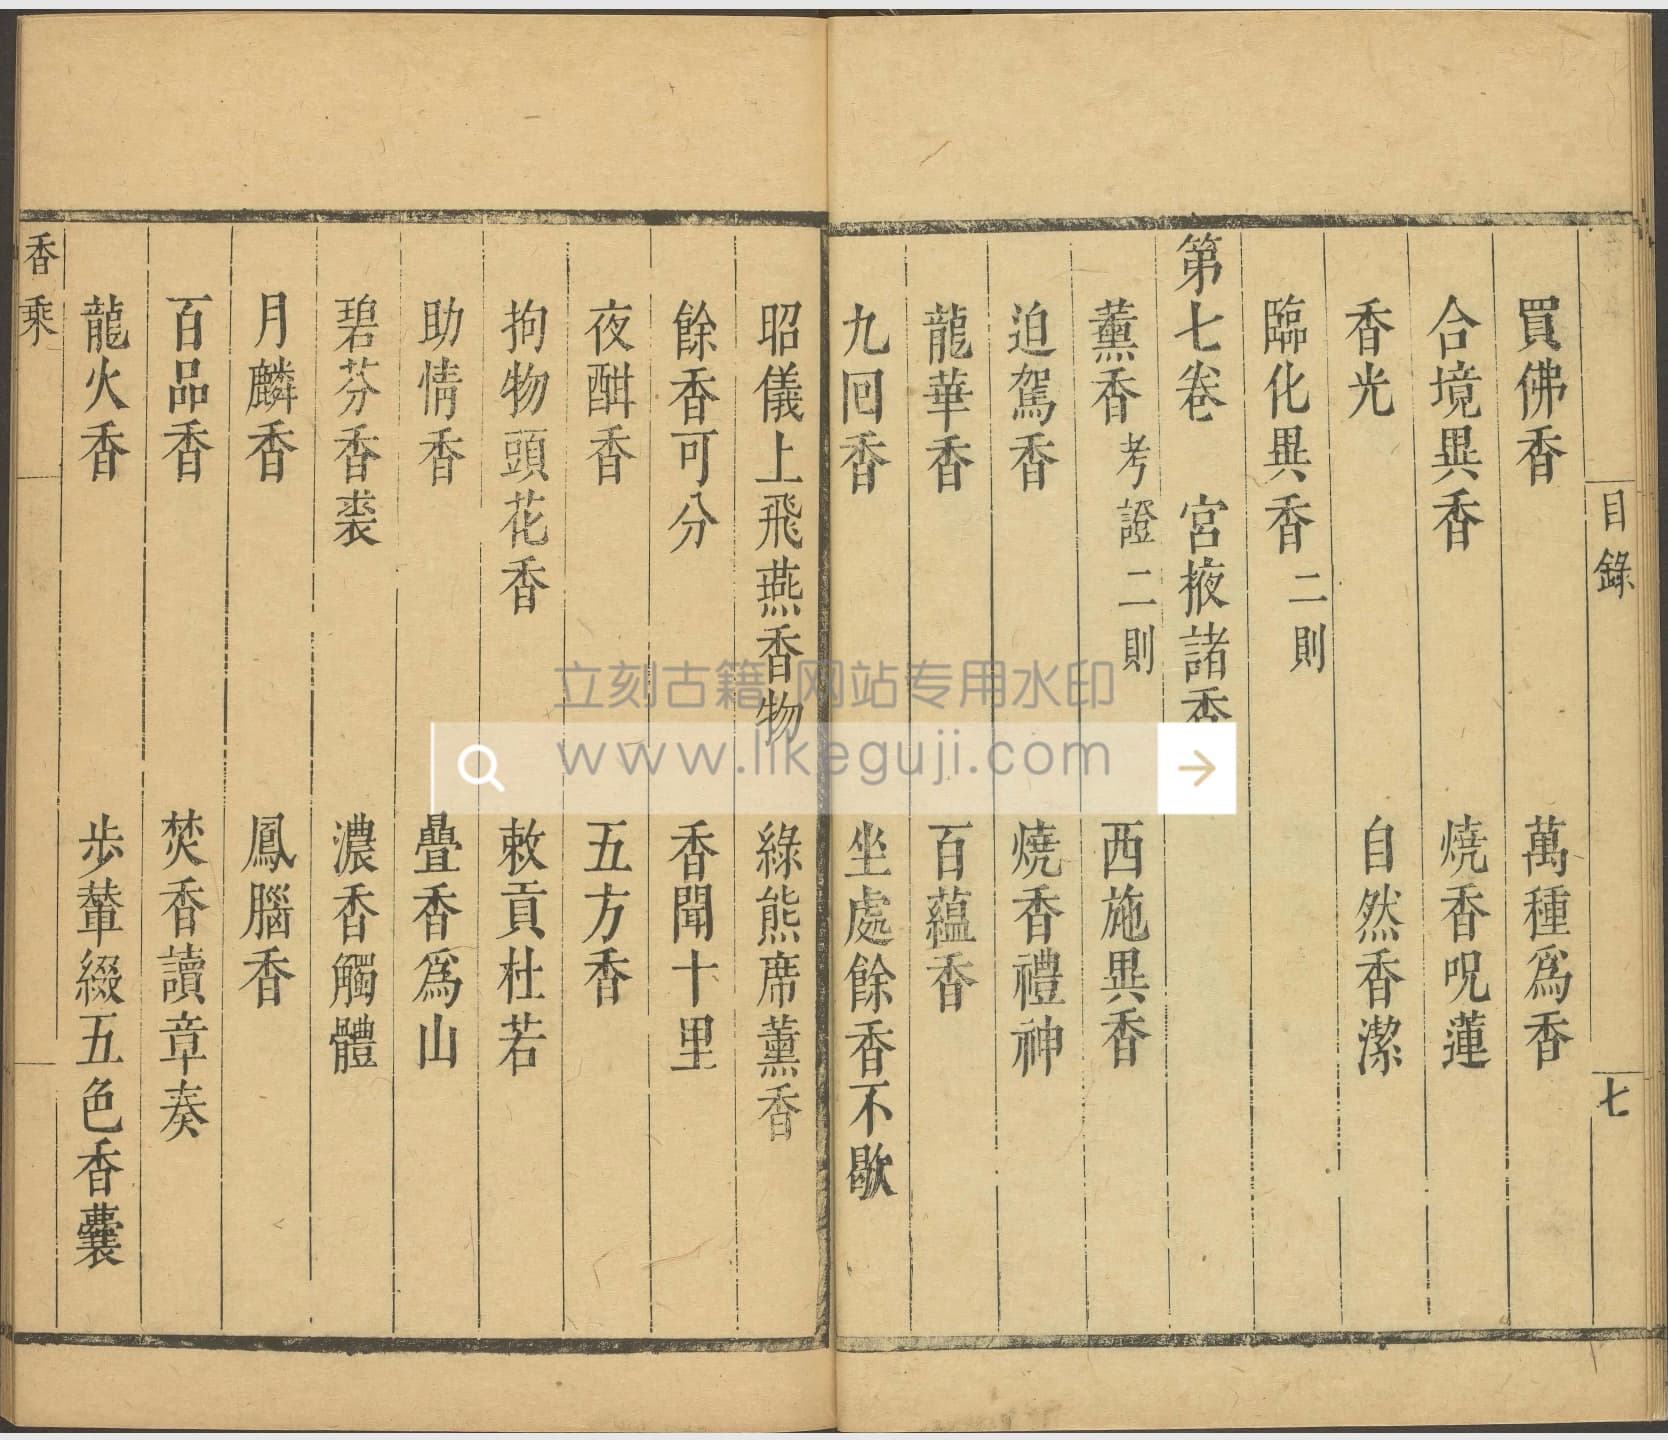 目錄 七
買佛香 萬種爲香
合境異香 燒香呪蓮
香光 自然香潔
臨化異香二則
第七卷 宮掖諸香
薰香考證二則 西施異香
迫駕香 燒香禮神
龍華香 百蘊香
九回香 坐處餘香不歇
昭儀上飛燕香物 綠熊席薰香
餘香可分 香聞十里
夜酣香 五方香
拘物頭花香 敕貢杜若
助情香 疊香爲山
碧芬香裘 濃香觸體
月麟香 鳳腦香
百品香 焚香讀章奏
龍火香 步輦綴五色香囊
香乘
立刻古籍 网站专用水印
www.likeguji.com